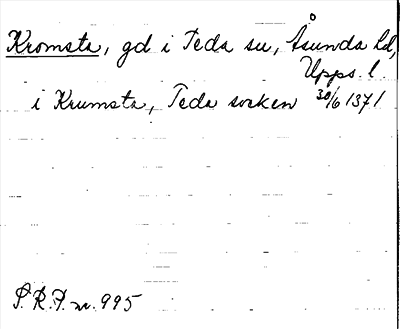 Kromsta, gd i Teda sn, Åsunda hd,
Upps. l.
i Krumsta, Teda socken 30/6 1371
S.R.P. nr. 995